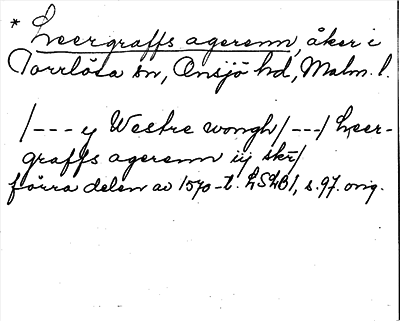 * Leergraffs agerenn, åker i
Torrlösa sn, Onsjö hd, Malm. l.
/--- y Westre wongh /---/ Leer-
graffs agerenn iij skr/
förra delen av 1570-t. LSLB1, s. 97. orig.